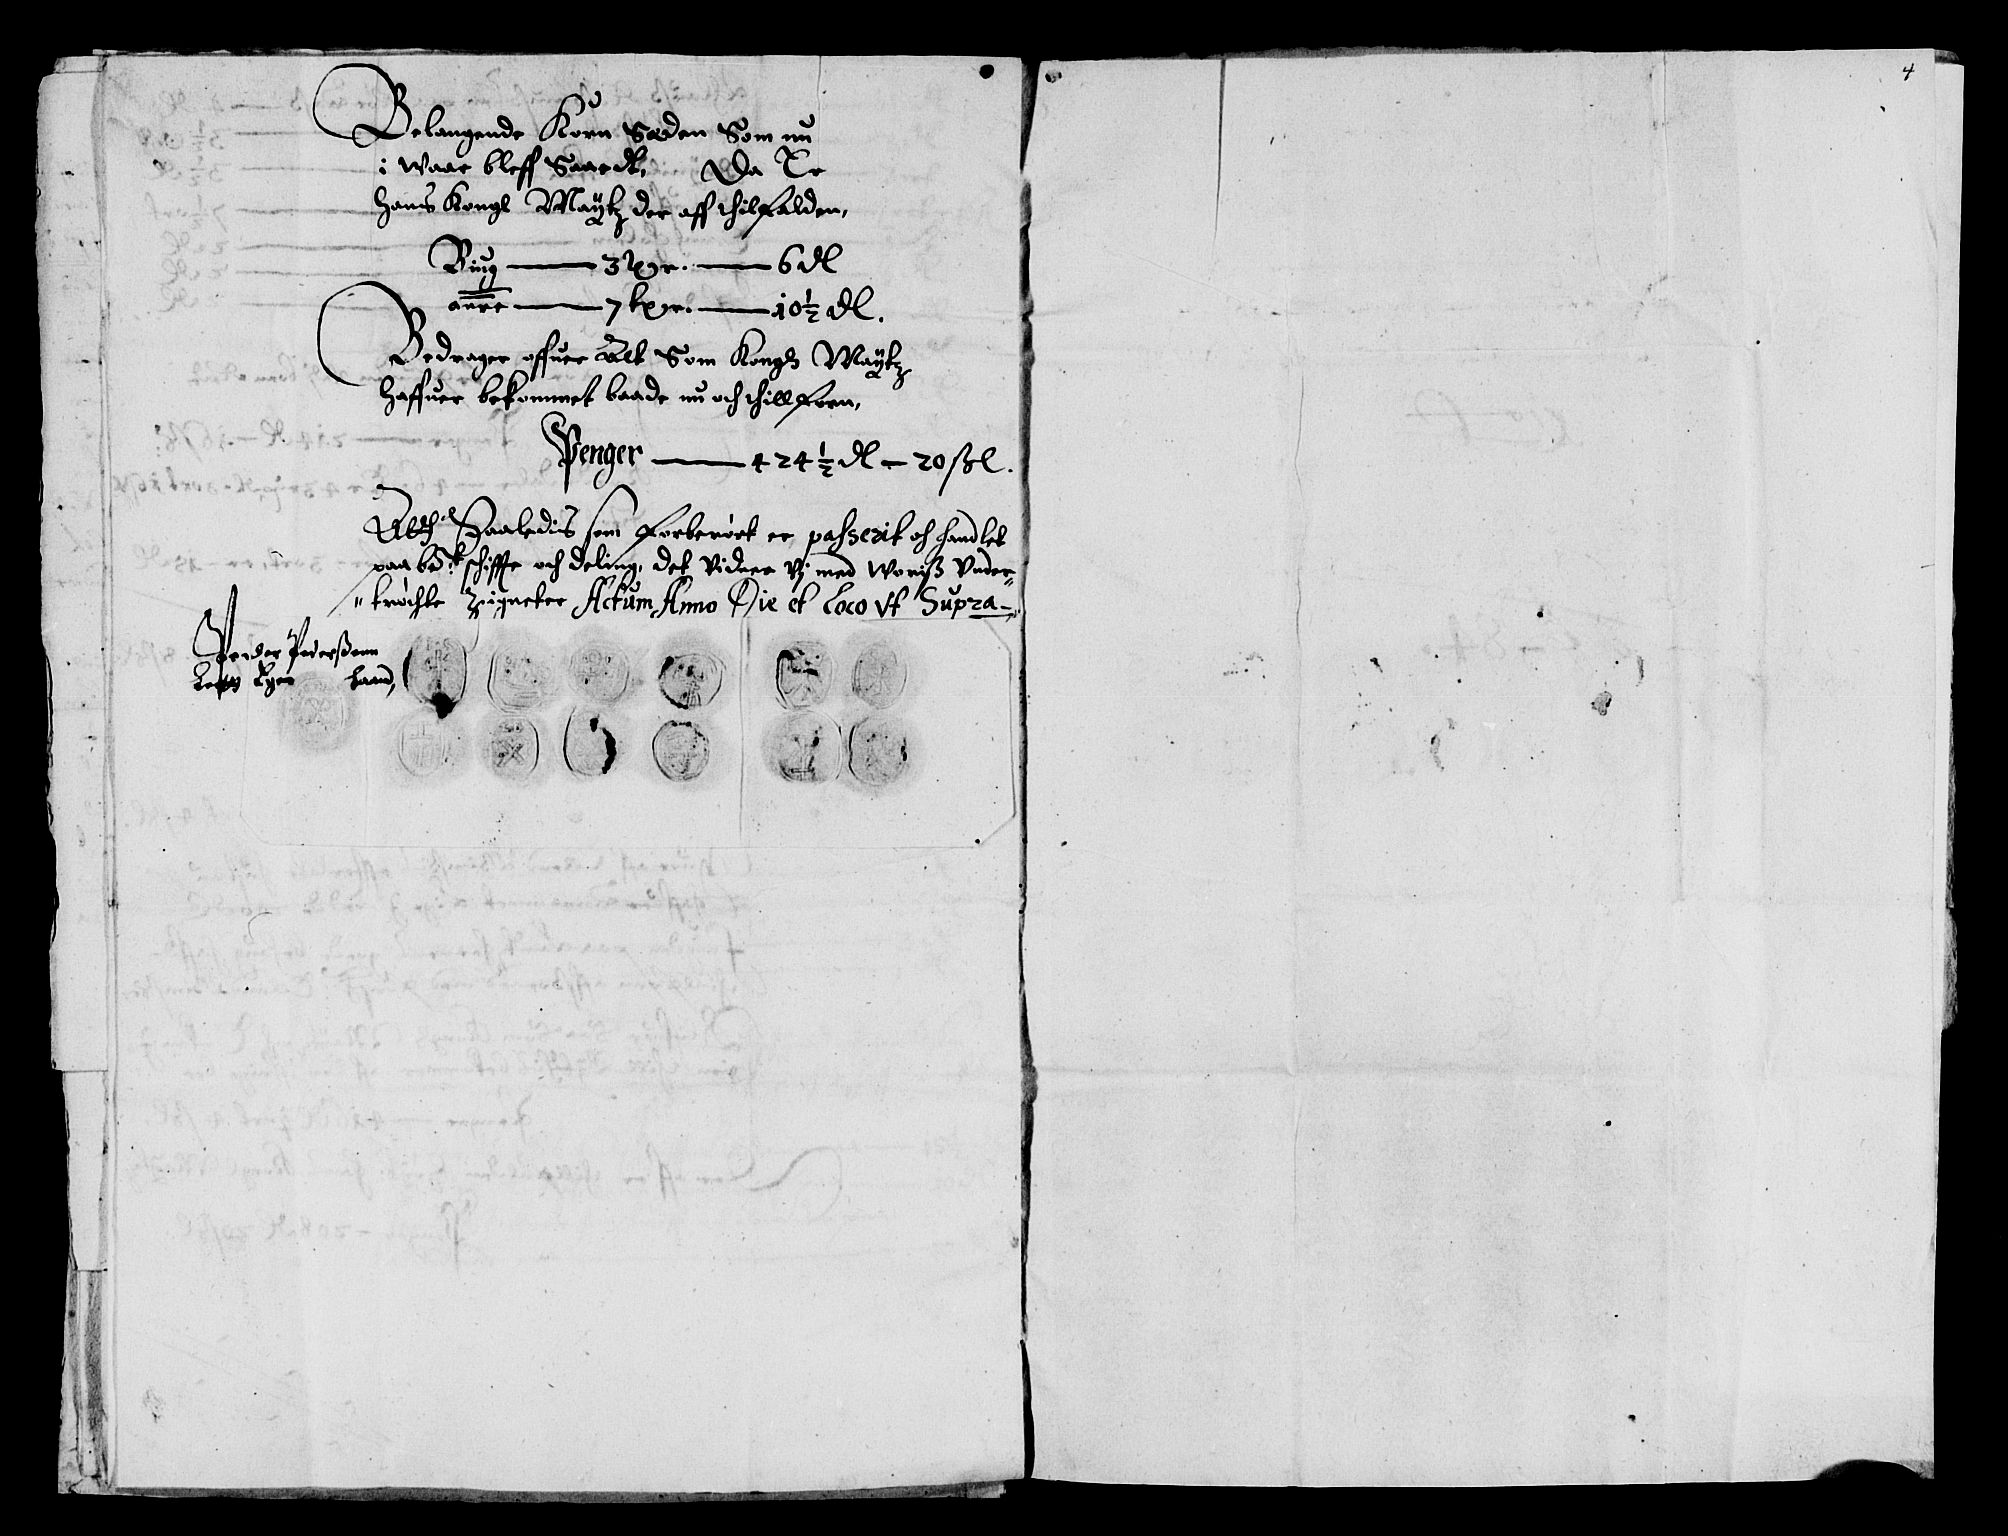 4
Belangende Korn Sæden Som nu
i Waar bleff Saaedt, Da Er
hans Kongl Maytz der aff thilfalden,
Biug — 3 — 6 dl
— 7 — 10½ dl.
Bedrager offuer Alt Som Kongl Maytz
haffuer bekommet baade nu och thillforn,
Penger — 424½ dl — 20 ßl.
Saaledis som forberört er passerit och handlet
paa bete schiffte och deling, det Vidner Vj med Woriß Vnder-
tröchte Zigneter Actum Anno Die et Loco Vt Supra
Peder Pederßenn
Egen haand,